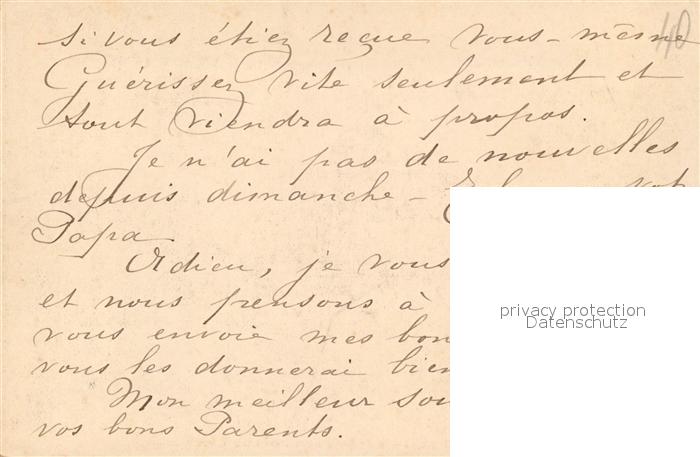 si vous étiez reçue vous-même
40
Guérissez vite seulement et
tout viendra à propos.
Je n'ai pas de nouvelles
depuis dimanche -
Papa
Adieu, je vous
et nous pensons à
vous envoie mes bon
vous les donnerai bien
Mon meilleur sou
vos bons Parents.
privacy protection
Datenschutz